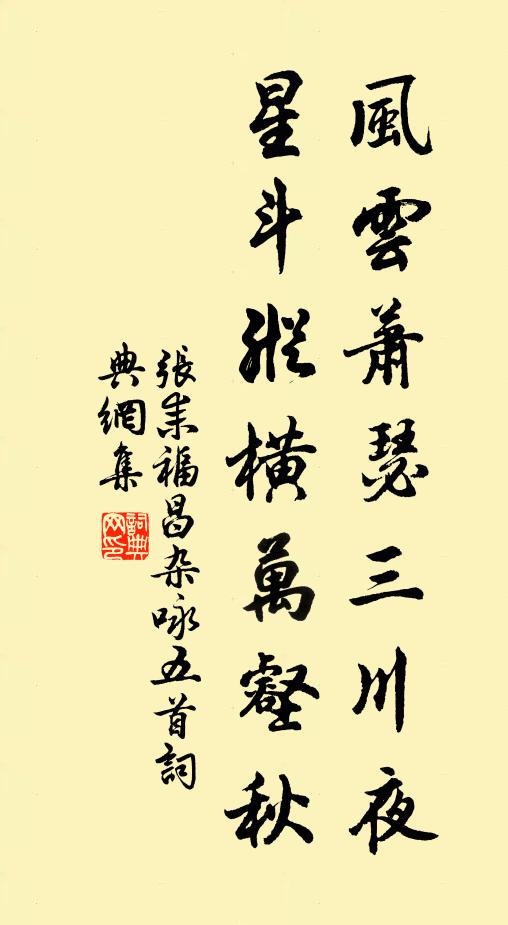 風雲蕭瑟三川夜
星斗縱橫萬壑秋
張耒福昌杂咏五首詞
典網集
詞典
网印